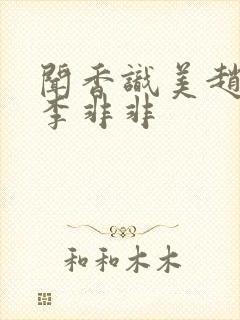 聞香識美趙
李非非
和和木木